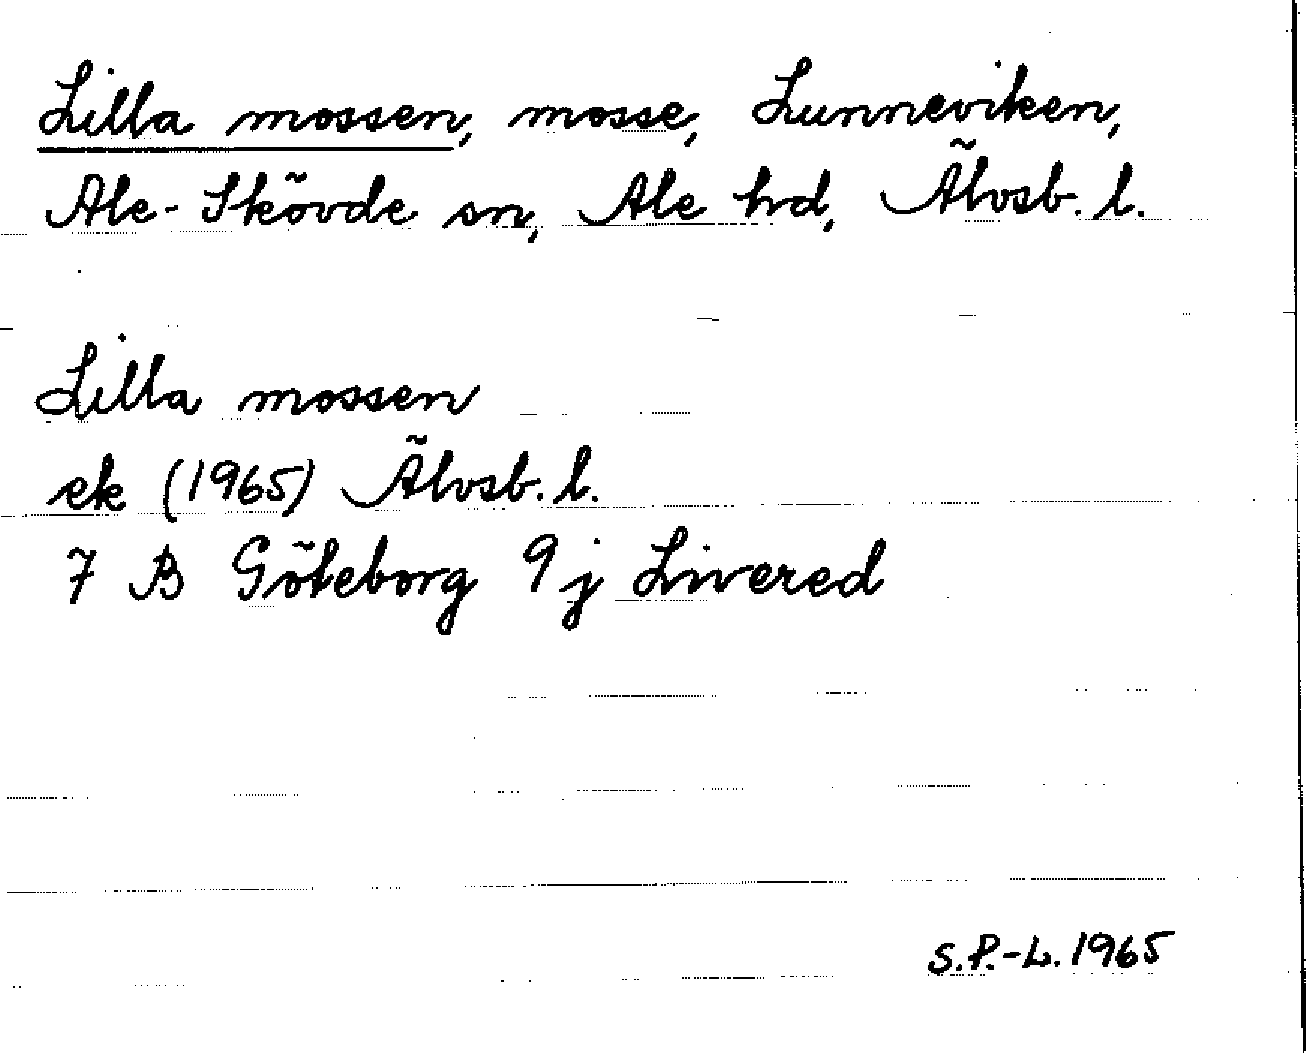 Lilla mossen, mosse, Lunneviken,
Ale-Skövde sn, Ale hd, Älvsb. l.
Lilla mossen
ek (1965) Älvsb. l.
7 B Göteborg 9 j Livered
S.P.-L. 1965